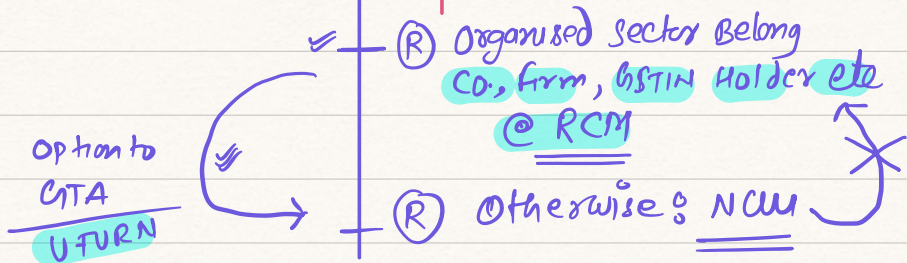 (R) Organised Sector Belong
Co., firm, GSTIN Holder etc
@ RCM
Option to
GTA
UTURN
(R) Otherwise : NCM